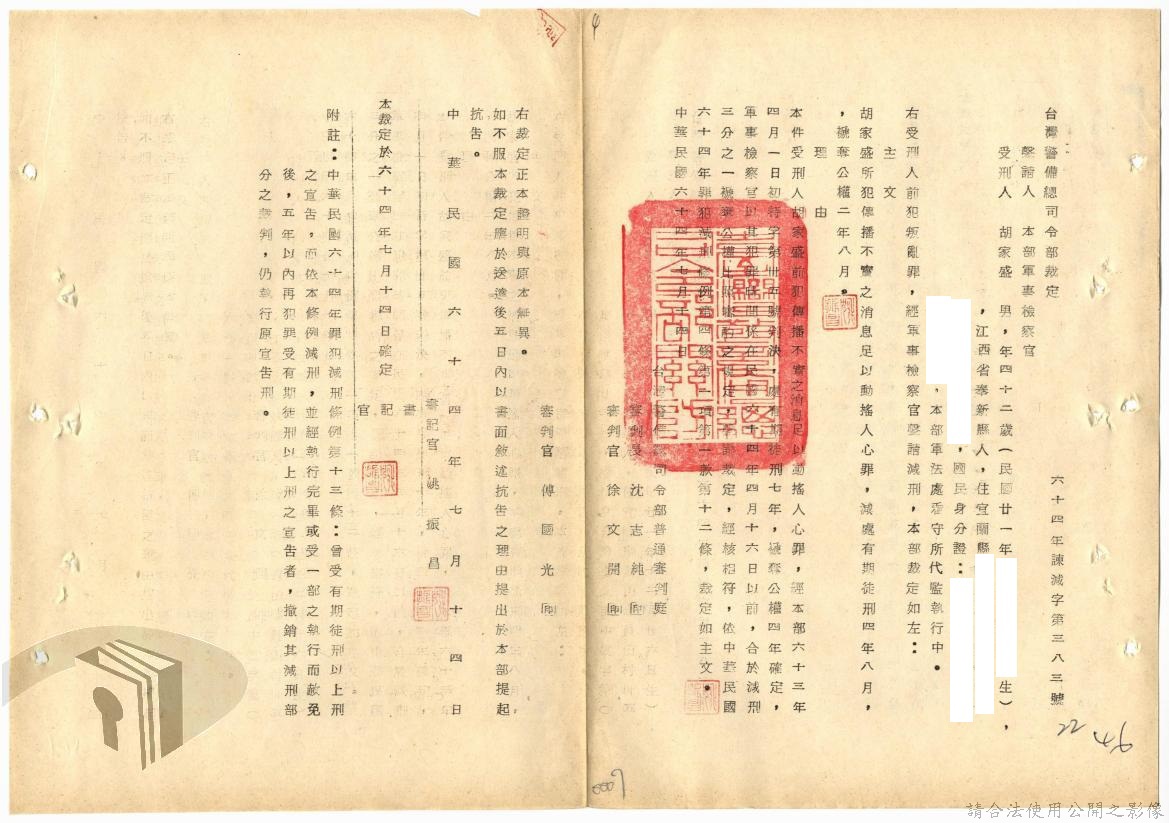 台灣警備總司令部裁定
六十四年諫減字第三八三號
聲請人 本部軍事檢察官
受刑人 胡家盛 男，年四十二歲（民國廿一年 生），
，江西省奉新縣人，住宜蘭縣
，國民身分證：
，本部軍法處看守所代監執行中。
右受刑人前犯叛亂罪，經軍事檢察官聲請減刑，本部裁定如左：
主文
胡家盛所犯傳播不實之消息足以動搖人心罪，減處有期徒刑四年八月，
，褫奪公權二年八月。
理由
本件受刑人胡家盛前犯傳播不實之消息足以動搖人心罪，經本部六十三年
四月一日初特字第卅五號判決，處有期徒刑七年，褫奪公權四年確定，
軍事檢察官以其犯罪時間係在民國六十四年四月十六日以前，合於減刑
三分之一褫奪公權比照 之規定， 裁定，經核相符，依中華民國
六十四年罪犯減刑條例第四條第一項第一款第十二條，裁定如主文。
中華民國六十四年七月十四日
台灣警備總司令部普通審判庭
審判長 沈志純 印
審判官 徐文開 印
審判官 傅國光 印
右裁定正本證明與原本無異。
如不服本裁定應於送達後五日內以書面敘述抗告之理由提出於本部提起
抗告。
中華民國六十四年七月十四日
書記官 姚振昌
書記官
本裁定於六十四年七月十四日確定
附註：中華民國六十四年罪犯減刑條例第十三條：曾受有期徒刑以上刑
之宣告，而依本條例減刑，並經執行完畢或受一部之執行而赦免
後，五年以內再犯罪受有期徒刑以上刑之宣告者，撤銷其減刑部
分之裁判，仍執行原宣告刑。
22
0007
請合法使用公開之影像